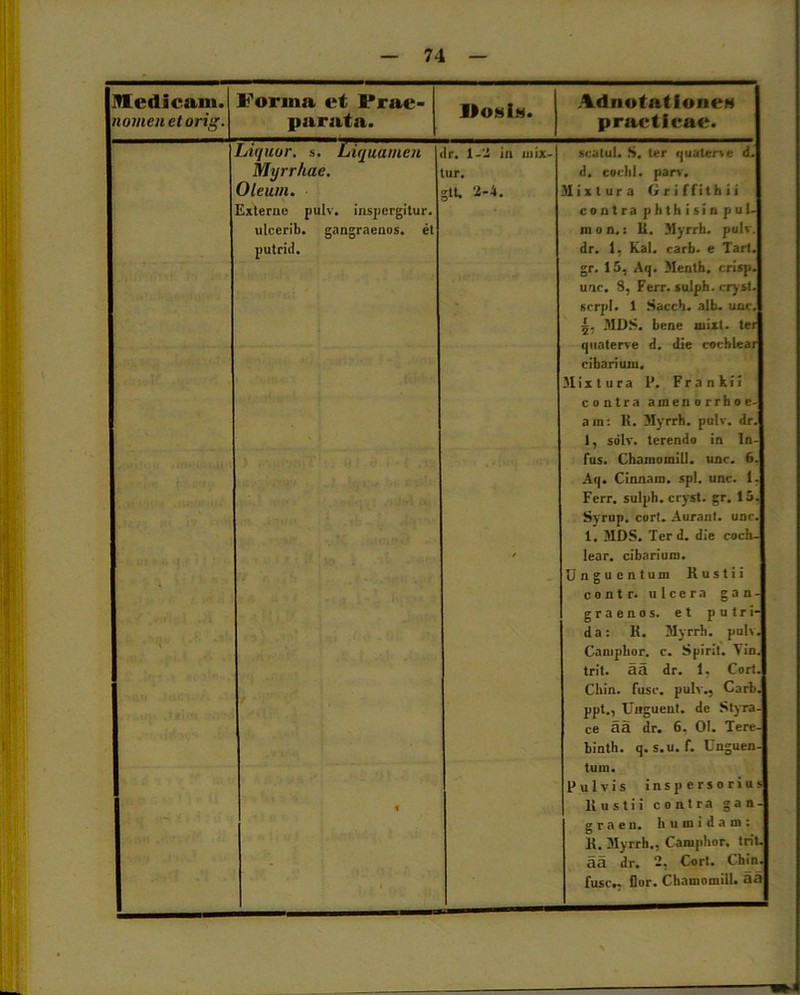 — 74 —
Medicam.
nomen et orig.
Forma et Prae-
parata.
Dosis.
Adnotationes
practicae.
Liquor. s. Liquamen
Myrrhae.
Oleum.
Externe pulv. inspergitur.
ulcerib. gangraenos. ét
putrid.
dr. 1-2 in mix-
tur.
gtt. 2-4.
scatul. S. ter quaterve d.
d. cochl. parv.
Mixtura Griffithii
contra phthisin pul-
mon.: R. Myrrh. pulv.
dr. 1, Kal. carb. e Tart.
gr. 15, Aq. Menth. crisp.
unc. 8, Ferr. sulph. cryst.
scrpl. 1 Sacch. alb. unc.
½, MDS. bene mixt. ter
quaterve d. die cochlear
cibarium.
Mixtura P. Frankii
contra amenorrhoe-
am: R. Myrrh. pulv. dr.
1, solv. terendo in In-
fus. Chamomill. unc. 6.
Aq. Cinnam. spl. unc. 1,
Ferr. sulph. cryst. gr. 15,
Syrup. cort. Aurant. unc.
1. MDS. Ter d. die coch-
lear. cibarium.
Unguentum Rustii
contr. ulcera gan-
graenos. et putri-
da: R. Myrrh. pulv.
Camphor. c. Spirit. Vin.
trit. āā dr. 1, Cort.
Chin. fusc. pulv., Carb.
ppt., Unguent. de Styra-
ce āā dr. 6, Ol. Tere-
binth. q. s. u. f. Unguen-
tum.
Pulvis inspersorius
Rustii contra gan-
graen. humidam:
R. Myrrh., Camphor. trit.
āā dr. 2, Cort. Chin.
fusc., flor. Chamomill. āā